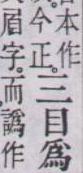 本作
今正。
三目為
眉字。而譌作